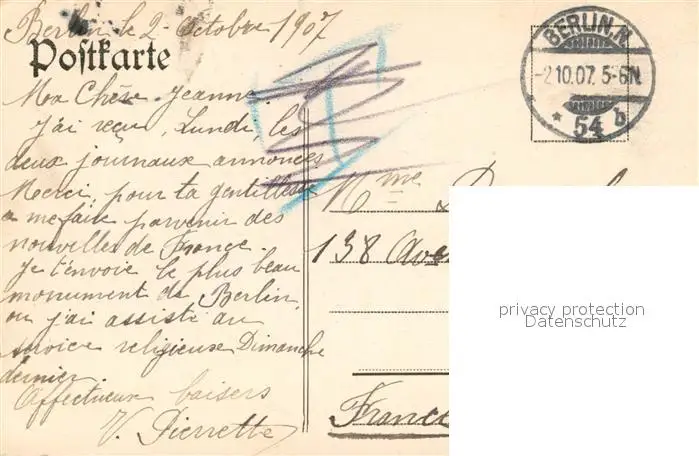 Berlin le 2 Octobre 1907
Postkarte
BERLIN.N.
-2.10.07. 5-6N.
* 54 b
Ma Chère Jeanne.
J'ai reçu, Lundi, les
deux journaux annoncés
Merci, pour ta gentillesse
a me faire parvenir des
nouvelles de France.
Je t'envoie le plus beau
monument de Berlin,
ou j'ai assisté au
service religieuse Dimanche
dernier.
Affectueux baisers
V. Pierrette
Mme
138 Ave
France
privacy protection
Datenschutz